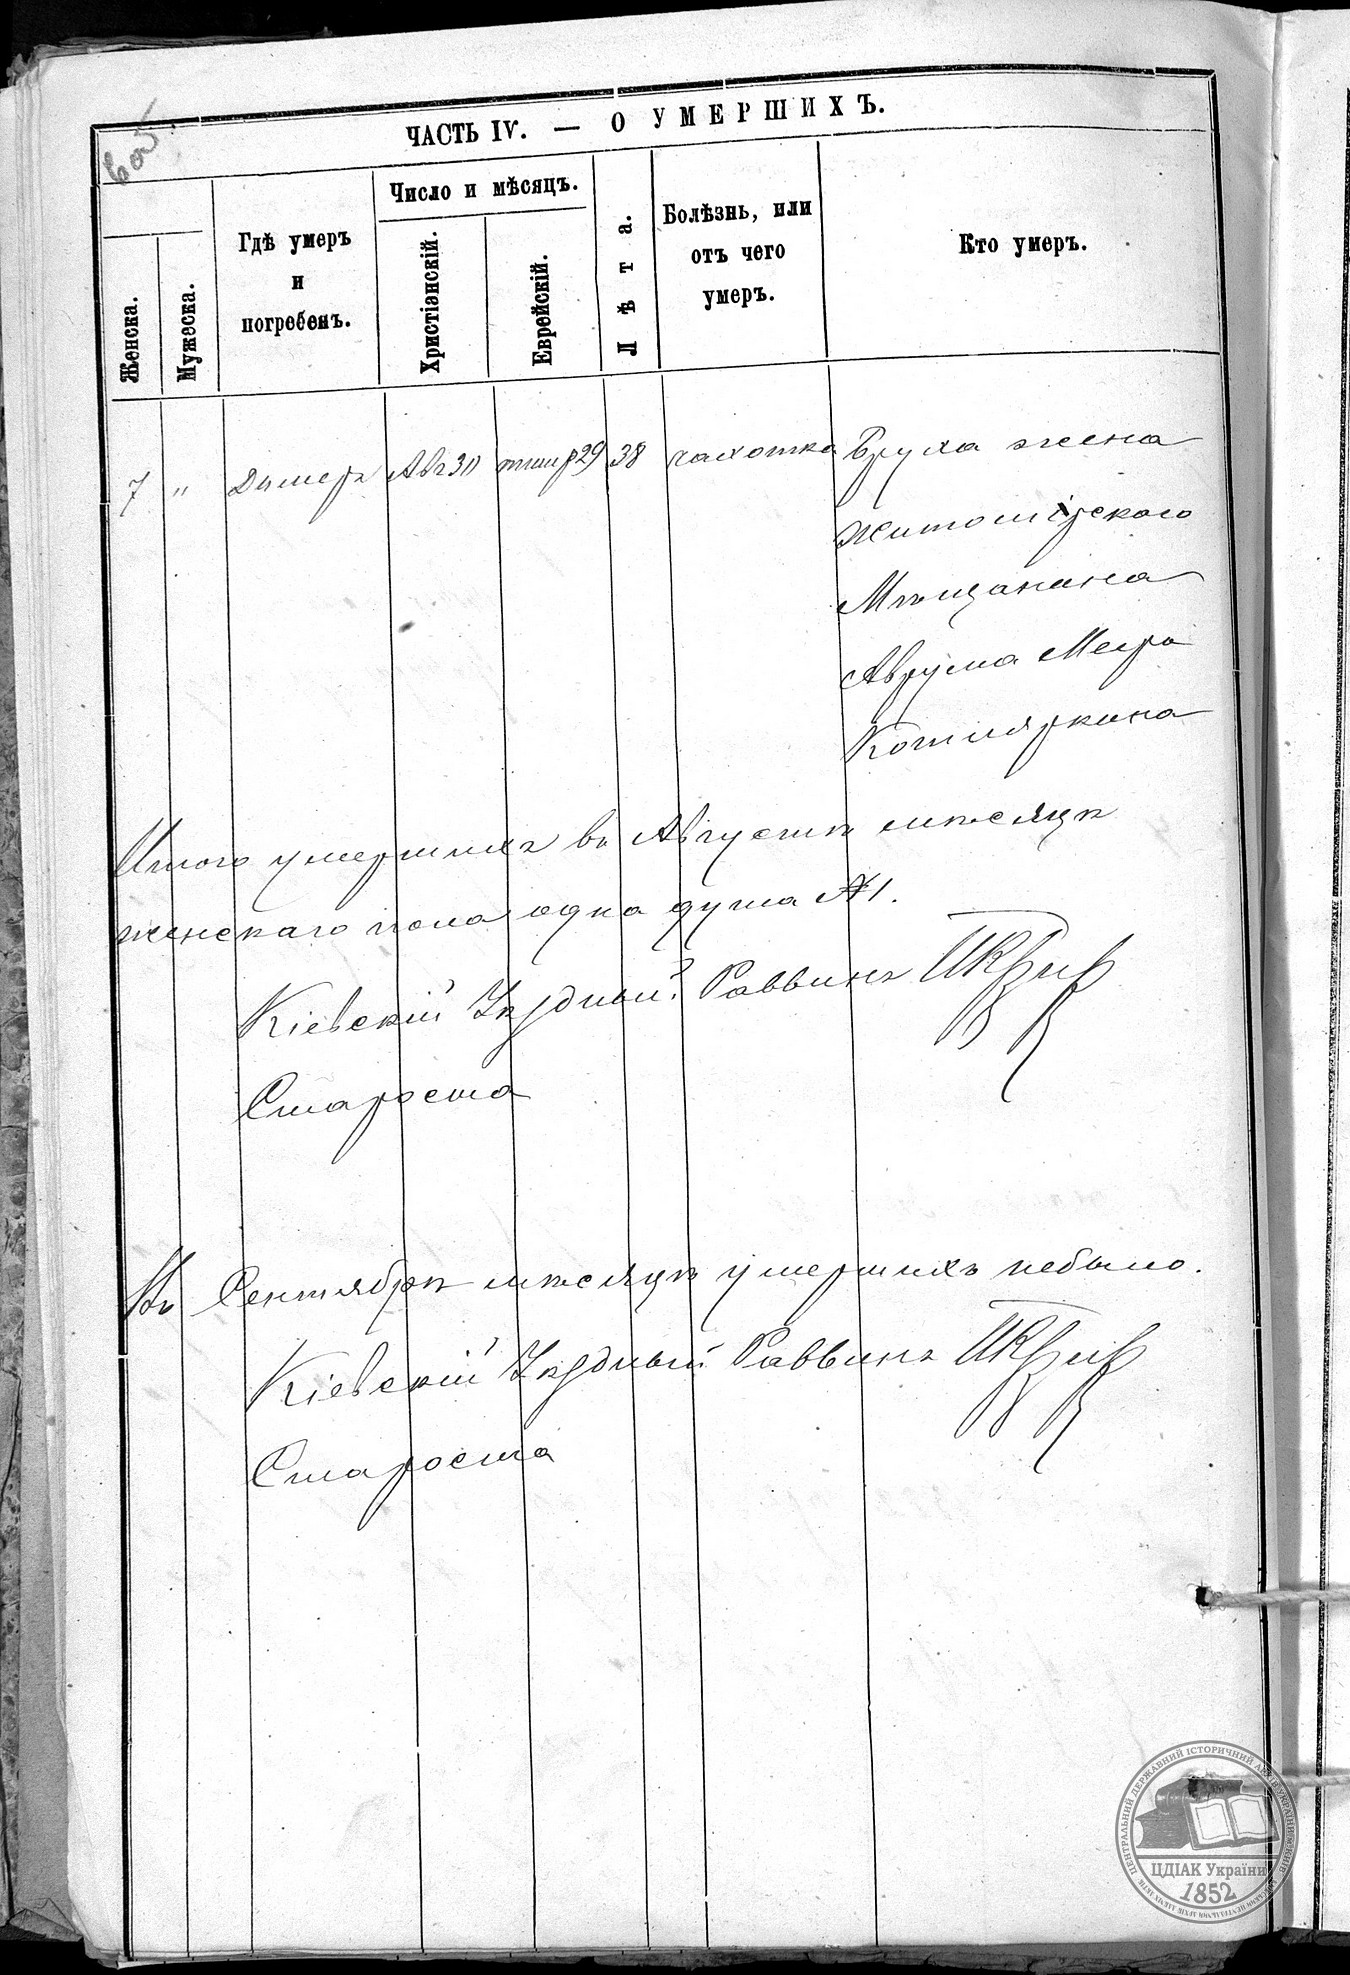 ЧАСТЬ IV. — О УМЕРШИХЪ.
Женска.
Мужеска.
Гдѣ умеръ
и
погребенъ.
Число и мѣсяцъ.
Христіанскій.
Еврейскій.
Лѣта.
Болѣзнь, или
отъ чего
умеръ.
Кто умеръ.
7 " Дымеръ Авг 30 тишр 29 38 чахотка Бруха жена
Житомірского
Мѣщанина
Аврума Меера
Котляркина
Итого умершихъ въ Августѣ мѣсяцѣ
женскаго пола одна душа №1.
Кіевскій Уѣздный Раввинъ
Староста
Въ Сентябрѣ мѣсяцѣ умершихъ небыло.
Кіевскій Уѣздный Раввинъ
Староста
ЦЕНТРАЛЬНИЙ ДЕРЖАВНИЙ ІСТОРИЧНИЙ АРХІВ УКРАЇНИ, М. КИЇВ
ЦДІАК України
1852